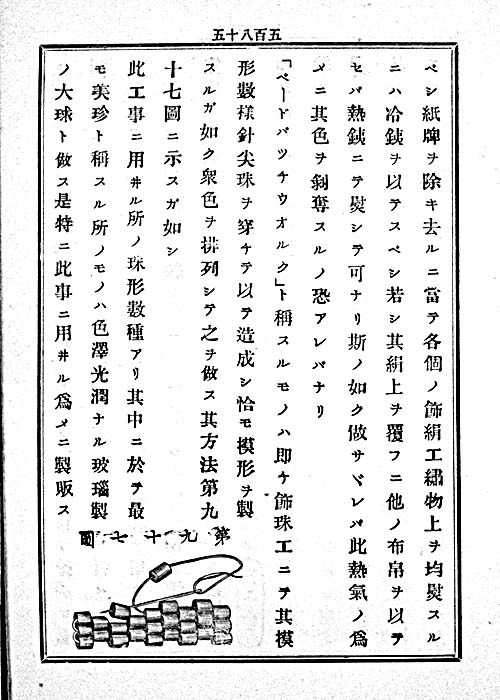 五百八十五
ベシ紙牌ヲ除キ去ルニ當テ各個ノ飾絹工繡物上ヲ均熨スル
ニハ冷銕ヲ以テスベシ若シ其絹上ヲ覆フニ他ノ布帛ヲ以テ
セバ熱銕ニテ熨シテ可ナリ斯ノ如ク做サヾレバ此熱氣ノ爲
メニ其色ヲ剝奪スルノ恐アレバナリ
「ベードパツチウオルク」ト稱スルモノハ即チ飾珠工ニテ其模
形數樣針尖珠ヲ穿チテ以テ造成シ恰モ模形ヲ製
スルガ如ク衆色ヲ排列シテ之ヲ做ス其方法第九
十七圖ニ示スガ如シ
此工事ニ用井ル所ノ珠形數種アリ其中ニ於テ最
モ美珍ト稱スル所ノモノハ色澤光潤ナル玻瑙製
ノ大球ト做ス是特ニ此事ニ用井ル爲メニ製販ス
第九十七圖